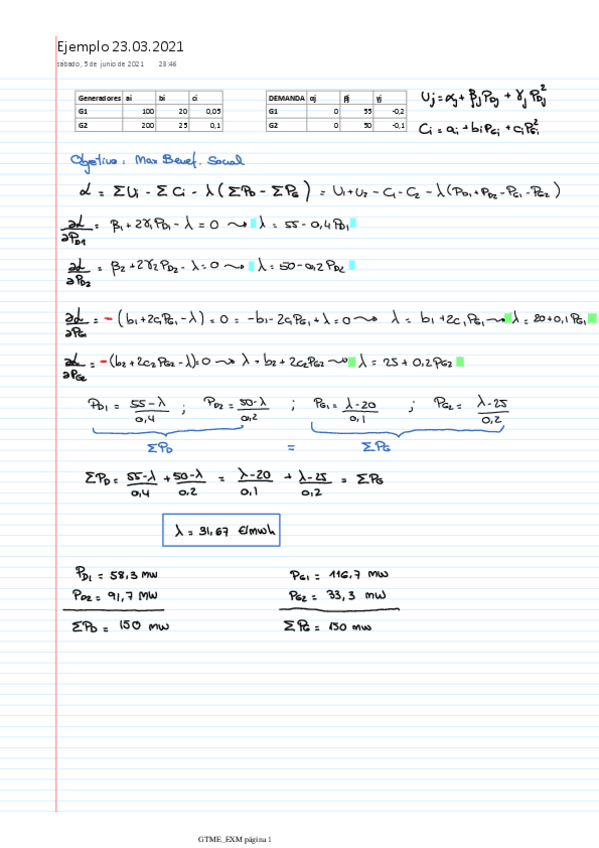 Ejemplo 23.03.2021
sábado, 5 de junio de 2021 23:46
Generadores ai bi ci
G1 100 20 0,05
G2 200 25 0,1
DEMANDA αj βj γj
G1 0 55 -0,2
G2 0 50 -0,1
Uj = αj + βj PDj + γj PDj²
Ci = ai + bi PGi + ci PGi²
Objetivo: Max Benef. Social
α = ΣUi - ΣCi - λ(ΣPD - ΣPG) = U1+U2 - C1 - C2 - λ(PD1+PD2 - PG1 - PG2)
∂α/∂PD1 = β1 + 2γ1PD1 - λ = 0 ⤳ λ = 55 - 0,4 PD1
∂α/∂PD2 = β2 + 2γ2PD2 - λ = 0 ⤳ λ = 50 - 0,2 PD2
∂α/∂PG1 = -(b1+2c1PG1 - λ) = 0 = -b1 - 2c1PG1 + λ = 0 ⤳ λ = b1 + 2c1PG1 ⤳ λ = 20+0,1 PG1
∂α/∂PG2 = -(b2+2c2PG2 - λ) = 0 ⤳ λ = b2 + 2c2PG2 ⤳ λ = 25 + 0,2 PG2
PD1 = 55-λ/0,4 ; PD2 = 50-λ/0,2 ; PG1 = λ-20/0,1 ; PG2 = λ-25/0,2
ΣPD = ΣPG
ΣPD = 55-λ/0,4 + 50-λ/0,2 = λ-20/0,1 + λ-25/0,2 = ΣPG
λ = 31,67 €/mwh
PD1 = 58,3 mw PG1 = 116,7 mw
PD2 = 91,7 mw PG2 = 33,3 mw
ΣPD = 150 mw ΣPG = 150 mw
GTME_EXM página 1